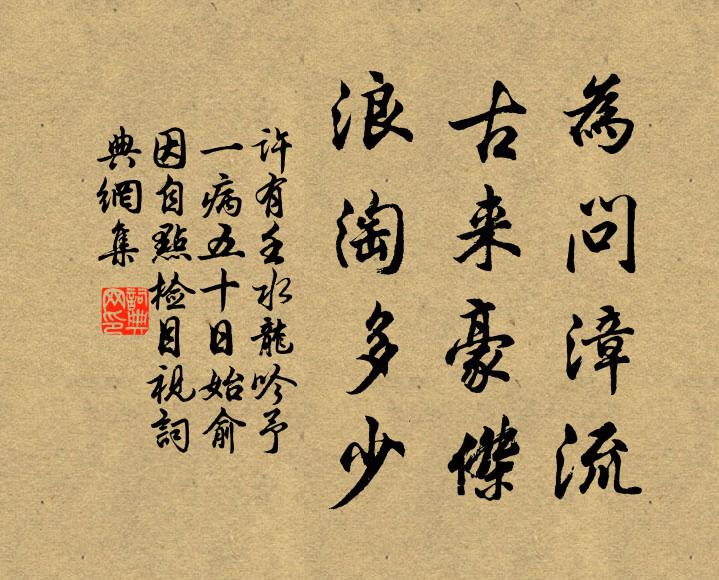 為問漳流
古来豪傑
浪淘多少
許有壬水龍吟予
一病五十日始俞
因自點检目視詞
典網集
詞典
网印